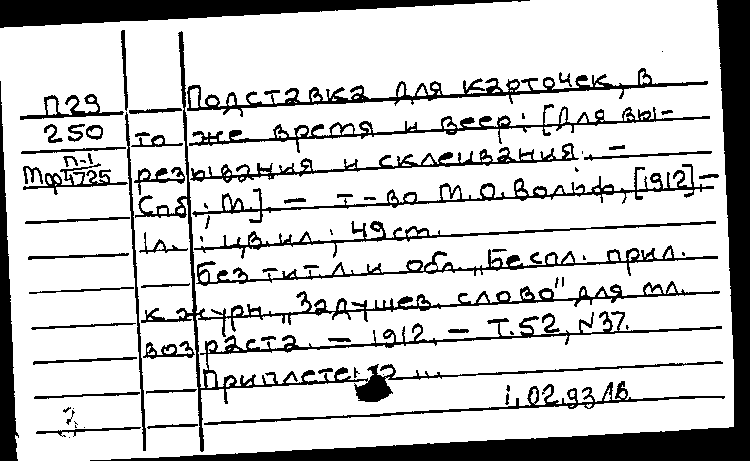 П29
250
П-1
Мф4725
Подставка для карточек, в
то же время и веер: [Для вы-
резывания и склеивания. –
Спб.; М]. – т-во М.О. Вольф, [1912]. –
1л. : цв. ил ; 49 cm.
Без тит. л. и обл. „Беспл. прил.
к журн. „Задушев. слово" для мл.
возраста. – 1912. – Т.52, N37.
1.02.93